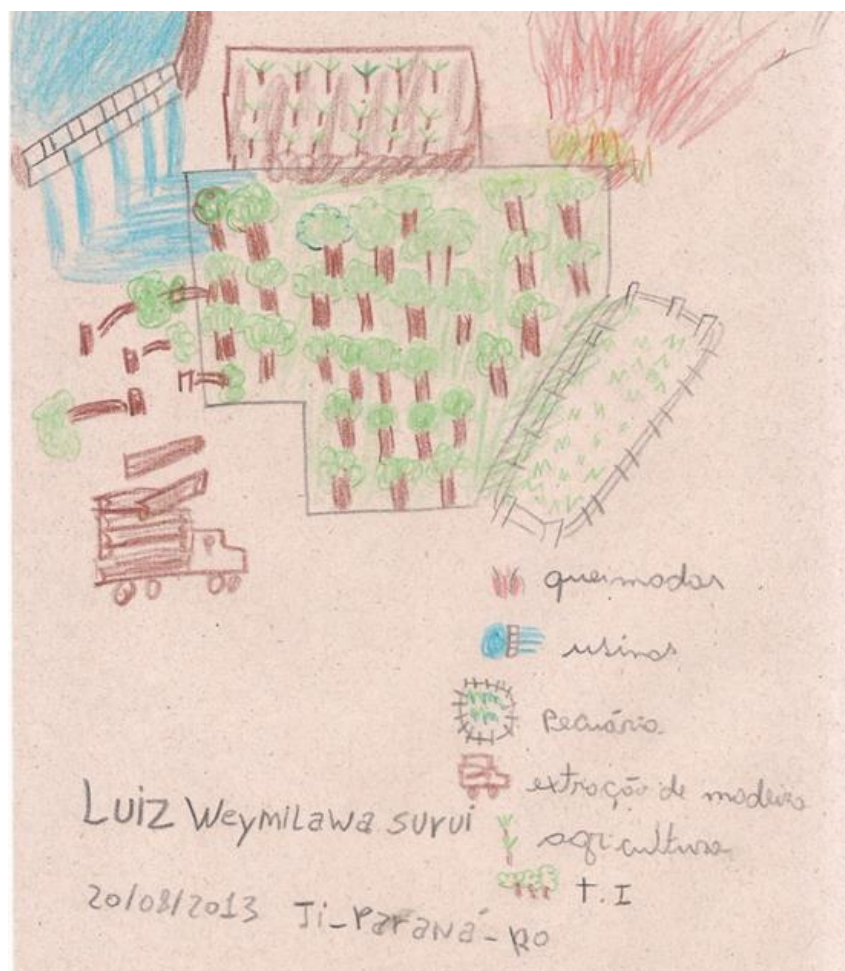 queimadas
usinas
Pecuária
extração de madeira
agricultura
T.I
Luiz Weymilawa surui
20/08/2013 Ji-Paraná-RO